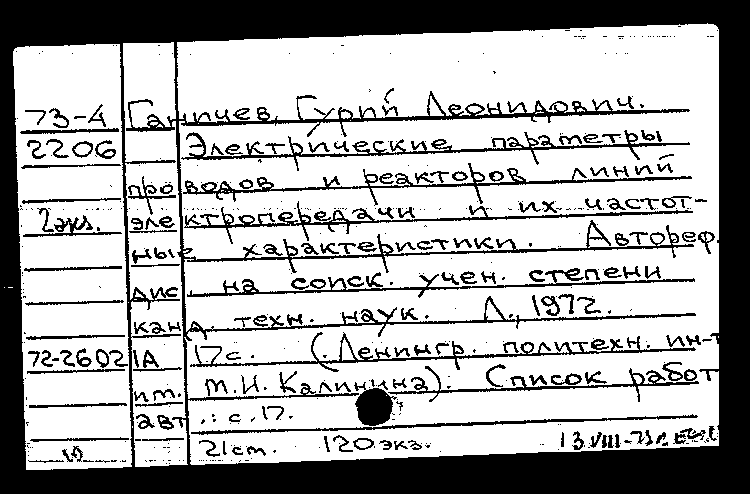 73-4 Ганичев, Гурий Леонидович.
2206 Электрические параметры
проводов и реакторов линий
2экз. электропередачи и их частот-
ные характеристики. Автореф.
дис. на соиск. учен. степени
канд. техн. наук. Л., 1972.
72-2602 1А 17с. (Ленингр. политехн. ин-т
им. М.И. Калинина). Список работ
авт.: с.17.
21см. 120экз. 13.VIII-73г.